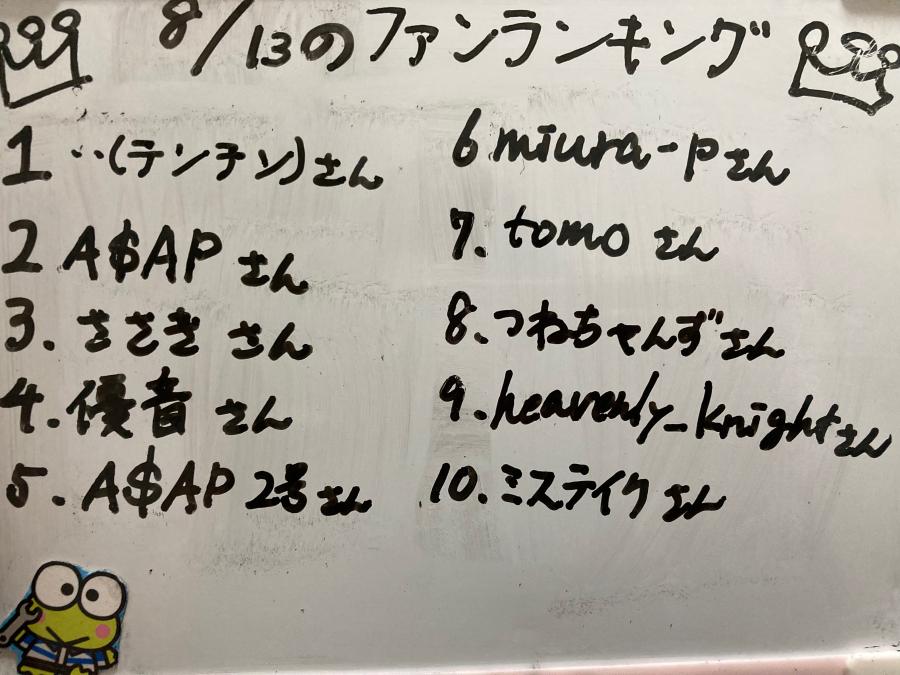 8/13のファンランキング
1 ··(テンテン)さん
2 A$AP さん
3. ささき さん
4. 優音 さん
5. A$AP 2号さん
6 miura-pさん
7. tomo さん
8. つねちゃんずさん
9. heavenly_knightさん
10. ミステイク さん